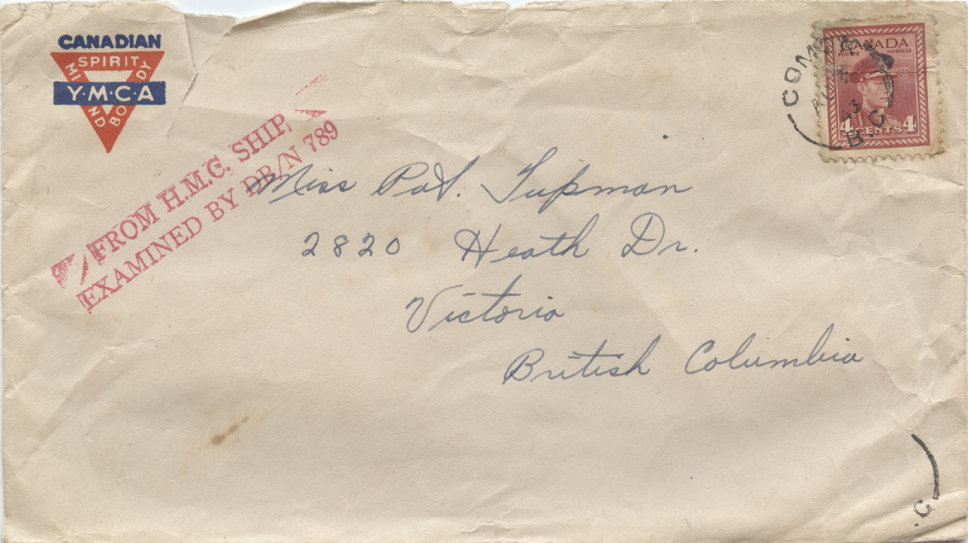 CANADIAN
SPIRIT
MIND
BODY
Y·M·C·A
FROM H.M.C. SHIP,
EXAMINED BY DB/N 789
CANADA
POSTAGE
4 CENTS 4
B.C.
Miss Pat. Tupman
2820 Heath Dr.
Victoria
British Columbia
.C.